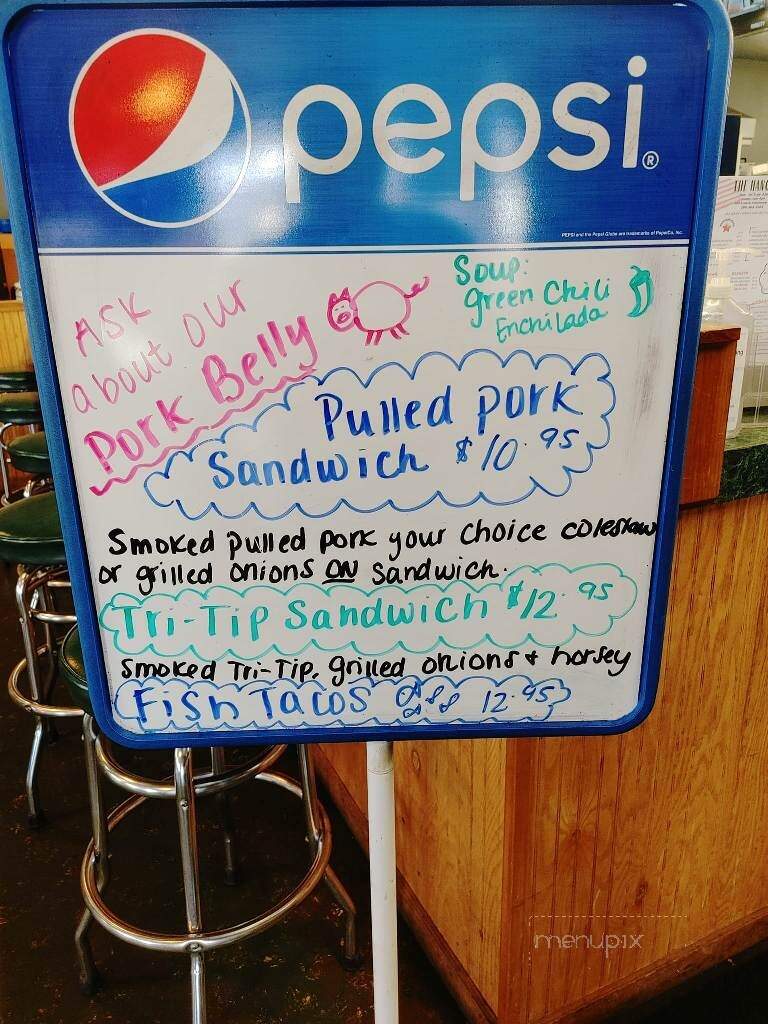 pepsi®
PEPSI and the Pepsi Globe are trademarks of PepsiCo, Inc.
Ask
about our
Pork Belly
Soup:
green Chili
Enchilada
Pulled pork
Sandwich $10.95
Smoked pulled pork your choice coleslaw
or grilled onions ON sandwich.
Tri-Tip Sandwich $12.95
Smoked Tri-Tip, grilled onions + horsey
Fish Tacos 12.95
THE HANG
menupix